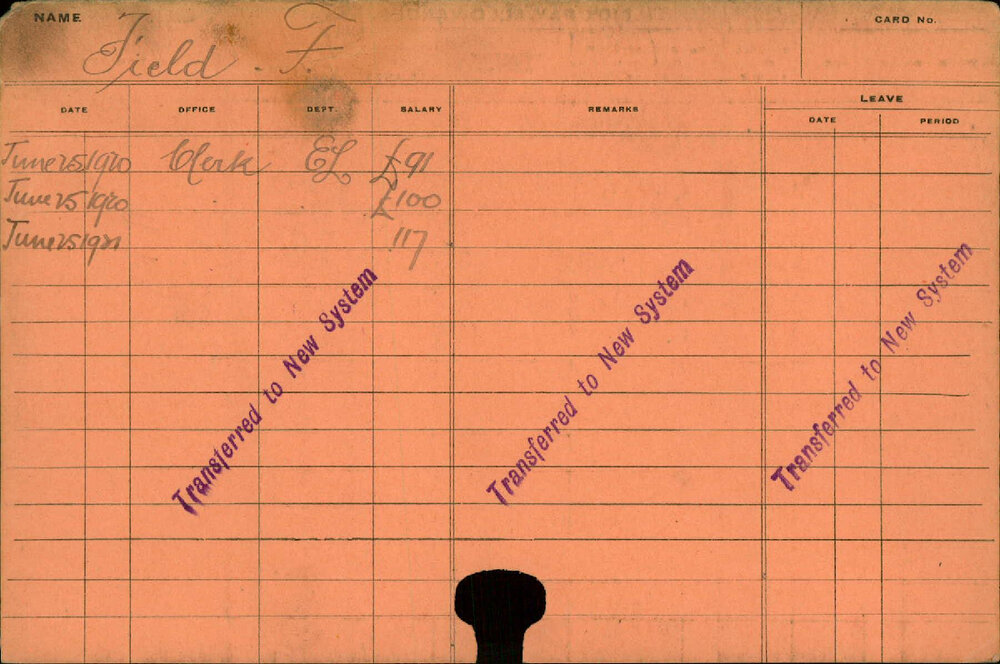 NAME
CARD No.
Field . F.
DATE OFFICE DEPT. SALARY REMARKS LEAVE
DATE PERIOD
June 25 1920 Clerk EL £91
June 25 1920 £100
June 25 1921 117
Transferred to New System
Transferred to New System
Transferred to New System